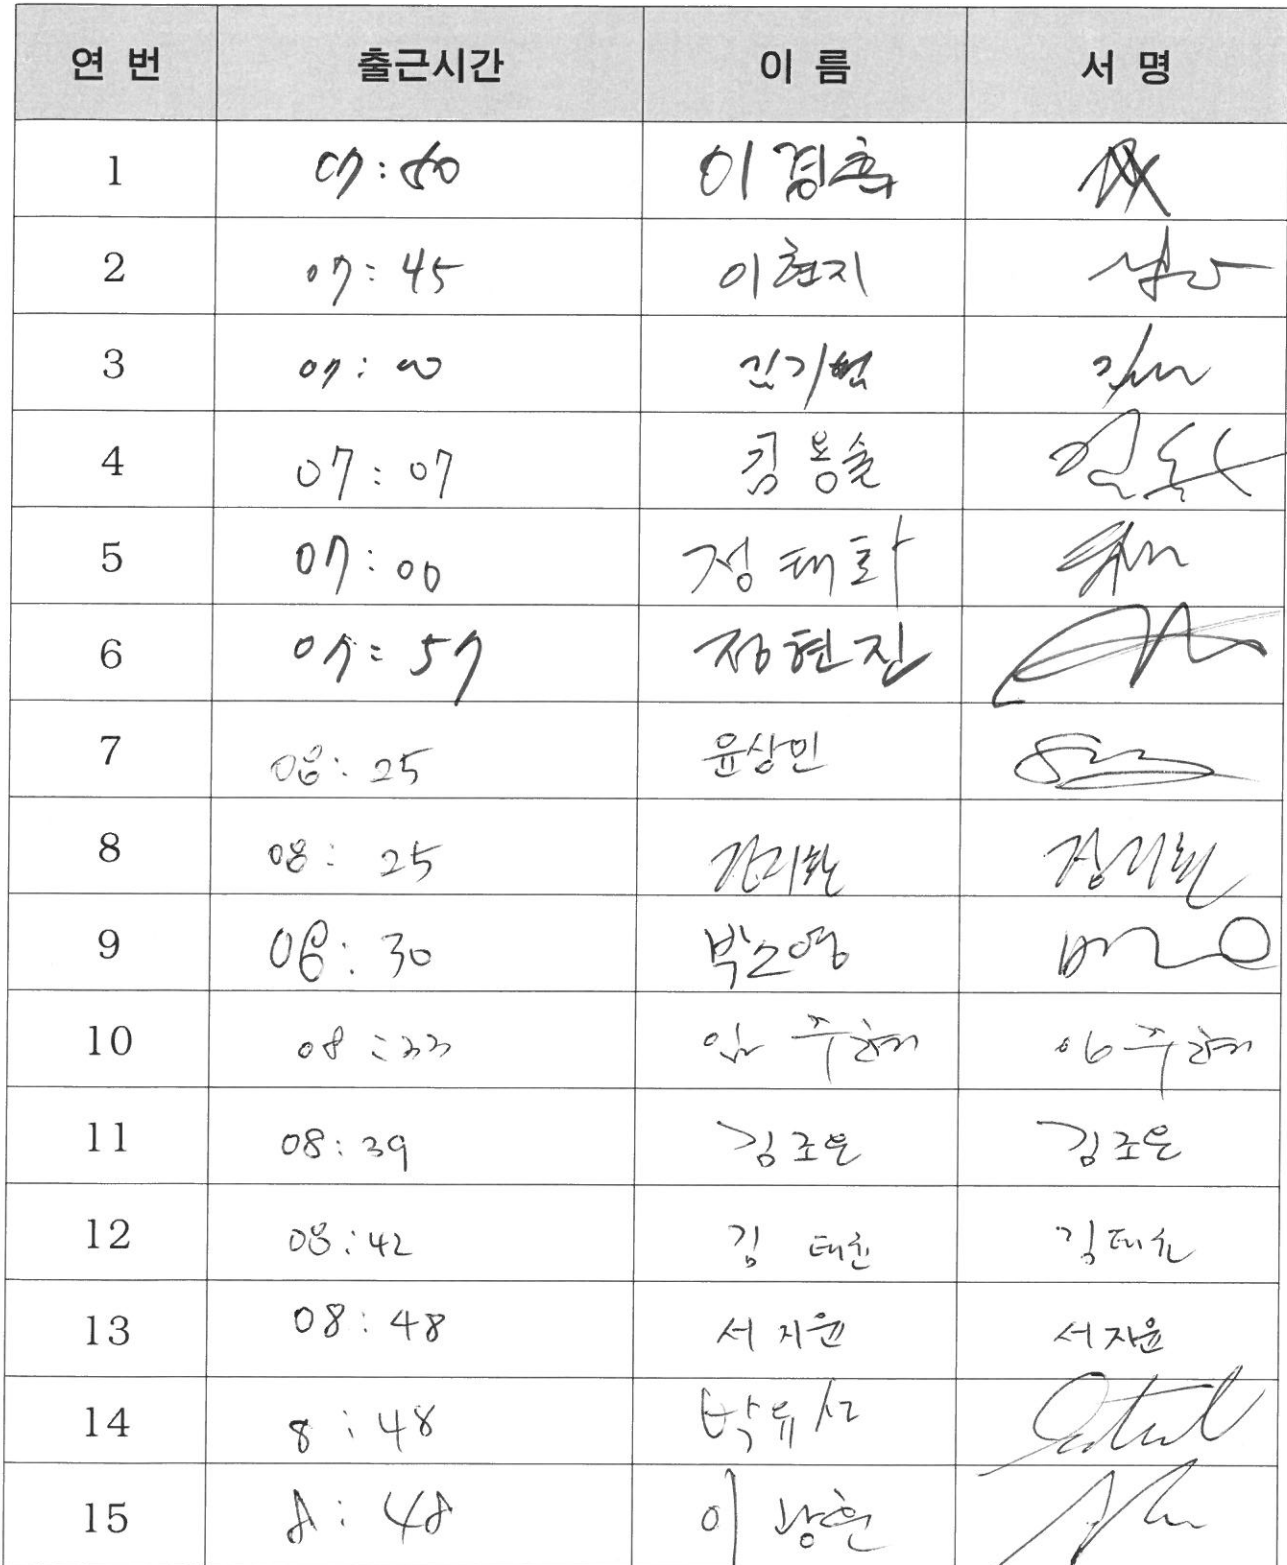 연 번 출근시간 이 름 서 명
1 07:50
2 07:45 이현지
3 07:00 김기범
4 07:07 김용술
5 07:00 정태화
6 07:57 정현진
7 08:25 윤상민
8 08:25
9 08:30 박소영
10 08:33 임주현
11 08:39 김조은 김조은
12 08:42 김태윤 김태윤
13 08:48 서지윤 서지윤
14 8:48 박유선
15 8:48 이광훈